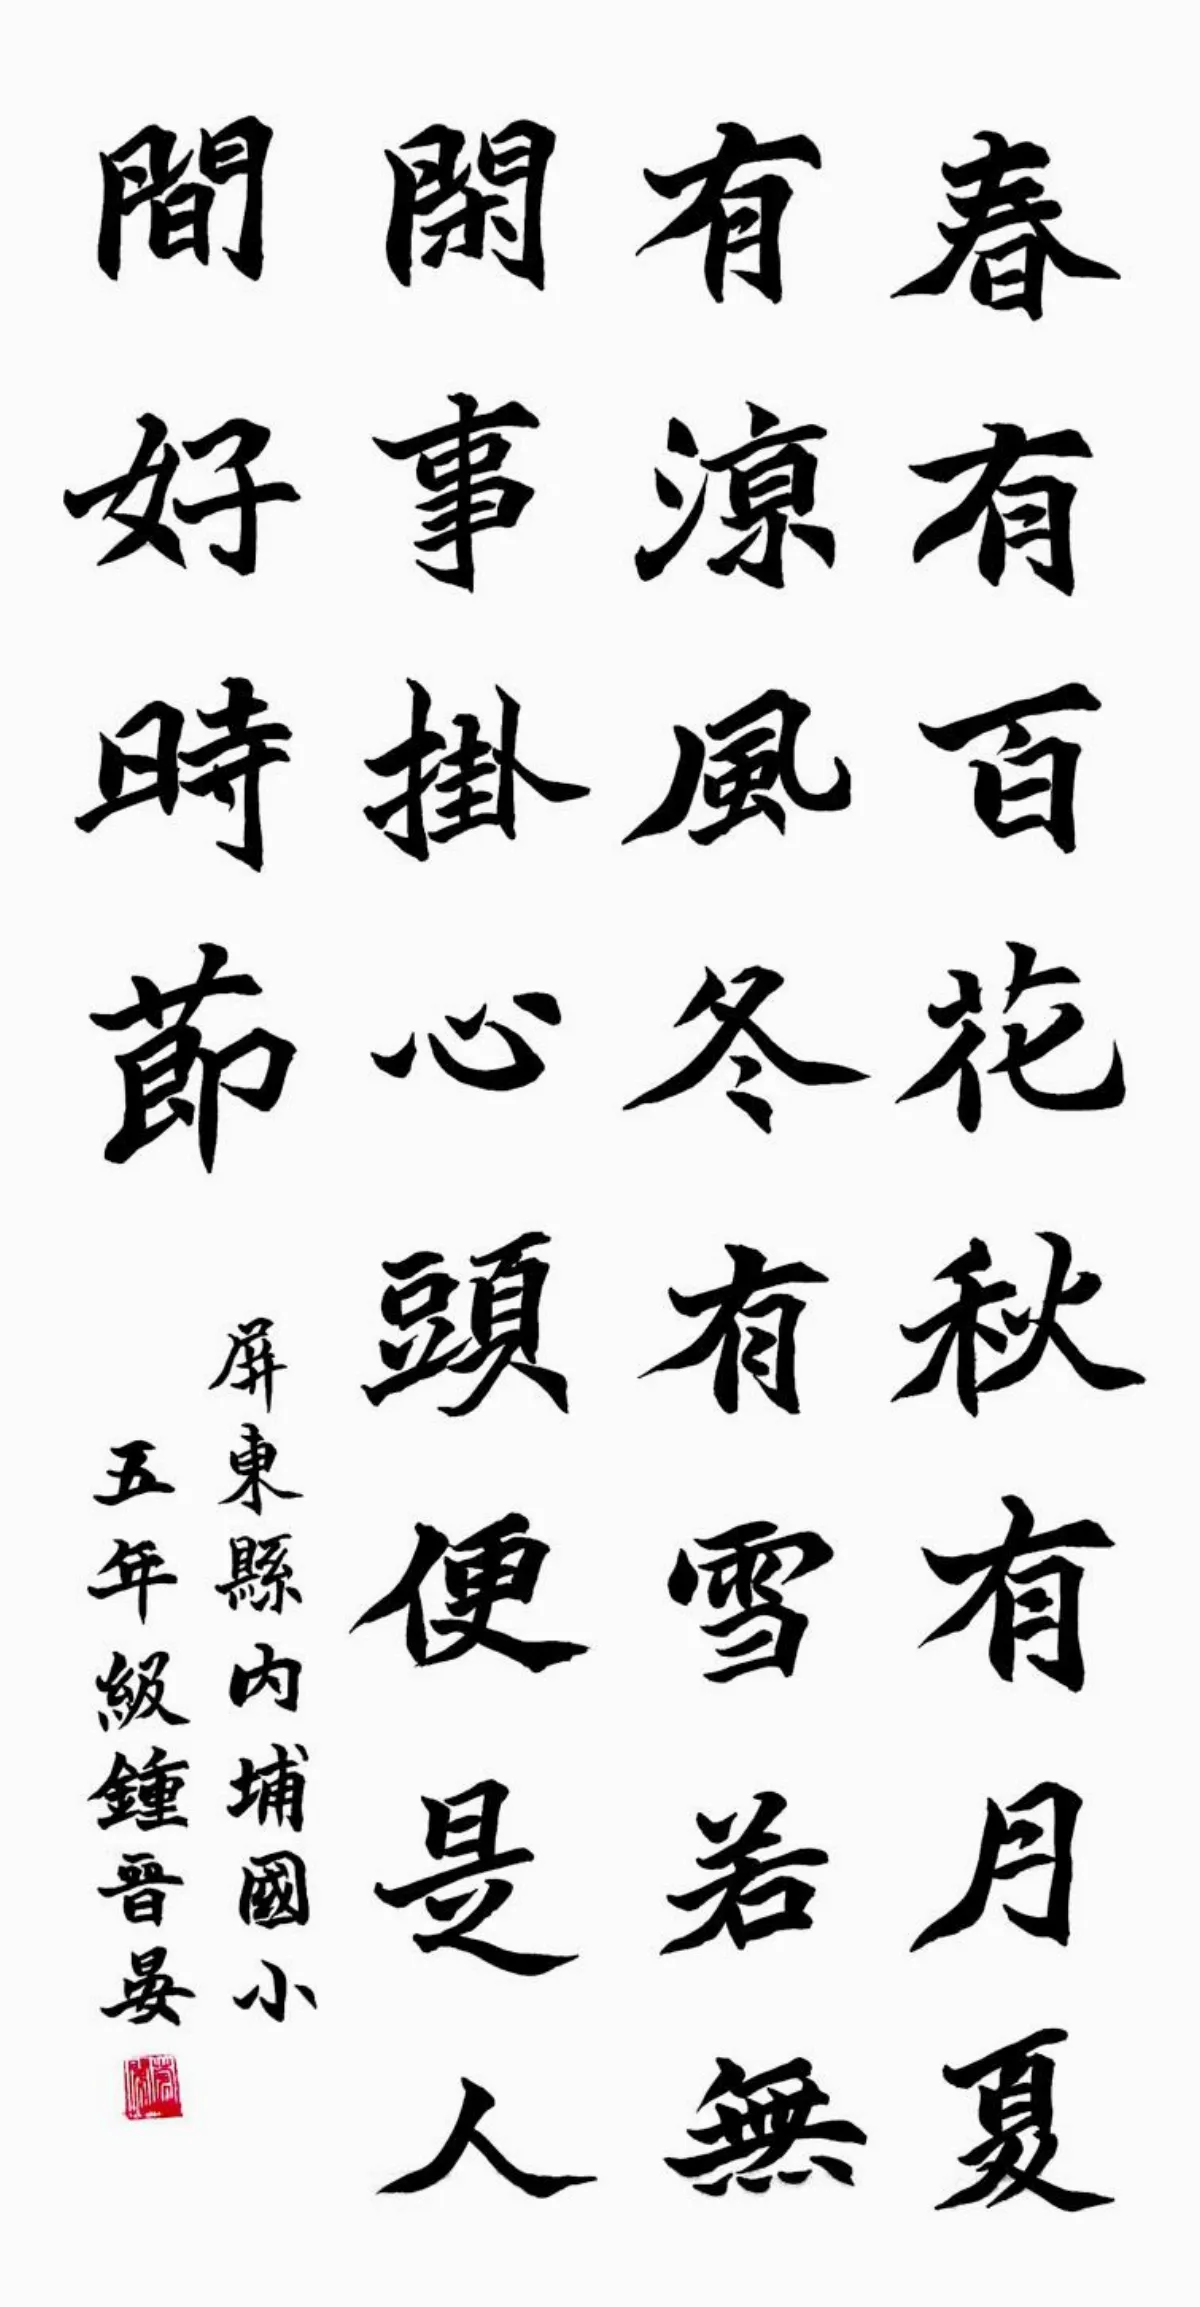 春有百花秋有月夏
有涼風冬有雪若無
閑事掛心頭便是人
間好時節
屏東縣內埔國小
五年級鍾晉晏